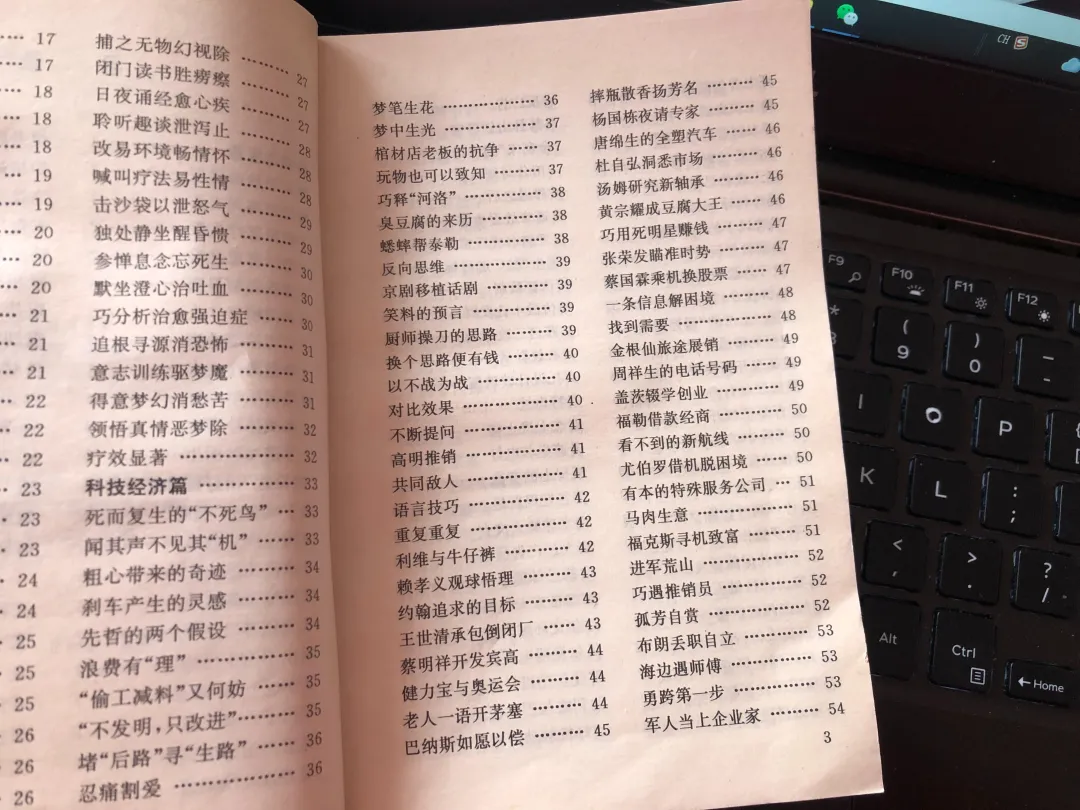 17
17
18
18
18
19
19
20
20
20
21
21
21
22
22
22
23
23
23
24
24
25
25
25
26
26
26
捕之无物幻视除 ……… 27
闭门读书胜痨瘵 ……… 27
日夜诵经愈心疾 ……… 27
聆听趣谈泄泻止 ……… 28
改易环境畅情怀 ……… 28
喊叫疗法易性情 ……… 28
击沙袋以泄怒气 ……… 29
独处静坐醒昏愦 ……… 29
参惮息念忘死生 ……… 30
默坐澄心治吐血 ……… 30
巧分析治愈强迫症 …… 30
追根寻源消恐怖 ……… 31
意志训练驱梦魔 ……… 31
得意梦幻消愁苦 ……… 31
领悟真情恶梦除 ……… 32
疗效显著 ……………… 32
科技经济篇 …………… 33
死而复生的“不死鸟” … 33
闻其声不见其“机” …… 33
粗心带来的奇迹 ……… 34
刹车产生的灵感 ……… 34
先哲的两个假设 ……… 34
浪费有“理” …………… 35
“偷工减料”又何妨 …… 35
“不发明,只改进” ……… 35
堵“后路”寻“生路” …… 36
忍痛割爱 ……………… 36
梦笔生花 ……………… 36
梦中生光 ……………… 37
棺材店老板的抗争 …… 37
玩物也可以致知 ……… 37
巧释“河洛” …………… 38
臭豆腐的来历 ………… 38
蟋蟀帮泰勒 …………… 38
反向思维 ……………… 39
京剧移植话剧 ………… 39
笑料的预言 …………… 39
厨师操刀的思路 ……… 39
换个思路便有钱 ……… 40
以不战为战 …………… 40
对比效果 ……………… 40
不断提问 ……………… 41
高明推销 ……………… 41
共同敌人 ……………… 41
语言技巧 ……………… 42
重复重复 ……………… 42
利维与牛仔裤 ………… 42
赖孝义观球悟理 ……… 43
约翰追求的目标 ……… 43
王世清承包倒闭厂 …… 43
蔡明祥开发宾高 ……… 44
健力宝与奥运会 ……… 44
老人一语开茅塞 ……… 44
巴纳斯如愿以偿 ……… 45
摔瓶散香扬芳名 ……… 45
杨国栋夜请专家 ……… 45
唐绵生的全塑汽车 …… 46
杜自弘洞悉市场 ……… 46
汤姆研究新轴承 ……… 46
黄宗耀成豆腐大王 …… 46
巧用死明星赚钱 ……… 47
张荣发瞄准时势 ……… 47
蔡国霖乘机换股票 …… 47
一条信息解困境 ……… 48
找到需要 ……………… 48
金根仙旅途展销 ……… 49
周祥生的电话号码 …… 49
盖茨辍学创业 ………… 49
福勒借款经商 ………… 50
看不到的新航线 ……… 50
尤伯罗借机脱困境 …… 50
有本的特殊服务公司 … 51
马肉生意 ……………… 51
福克斯寻机致富 ……… 51
进军荒山 ……………… 52
巧遇推销员 …………… 52
孤芳自赏 ……………… 52
布朗丢职自立 ………… 53
海边遇师傅 …………… 53
勇跨第一步 …………… 53
军人当上企业家 ……… 54
3
CH S
F9
F10
F11
F12
(
9
)
0
I
O
P
K
L
:
;
<
>
.
?
/
Alt
Ctrl
←Home